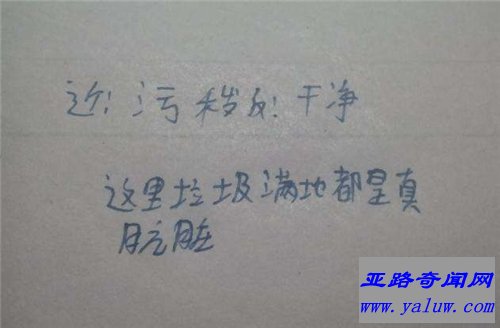 近:污秽反:干净
这里垃圾满地都是真
肮脏
亚路奇闻网
www.yaluw.com